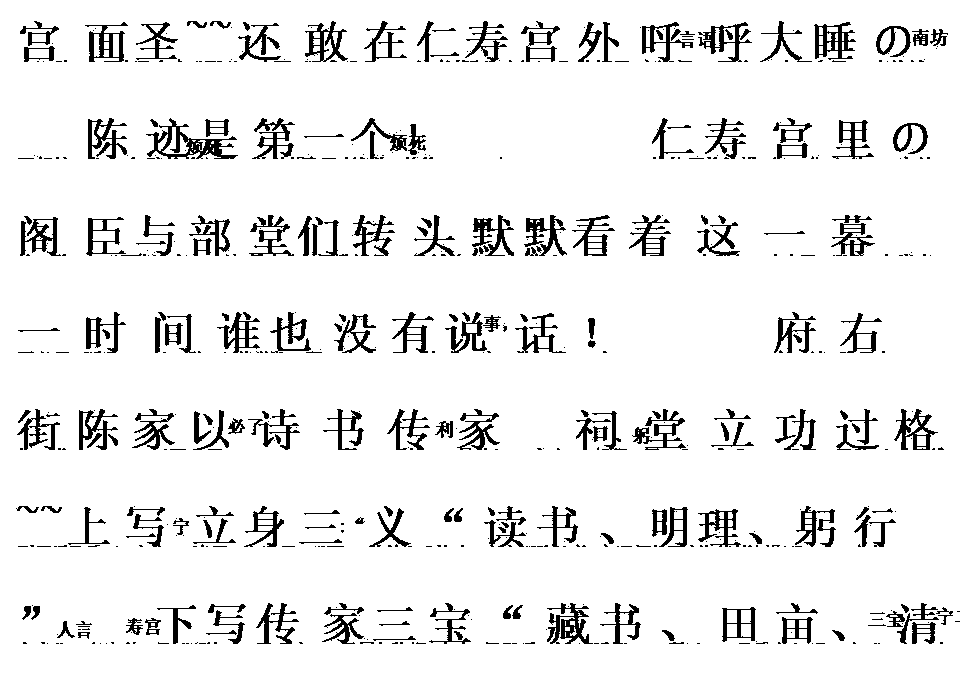 宫面圣~~还敢在仁寿宫外呼呼大睡の
陈迹是第一个！ 仁寿宫里の
阁臣与部堂们转头默默看着这一幕
一时间谁也没有说话！ 府右
街陈家以诗书传家 祠堂立功过格
~~上写立身三义“读书、明理、躬行
”下写传家三宝“藏书、田亩、清